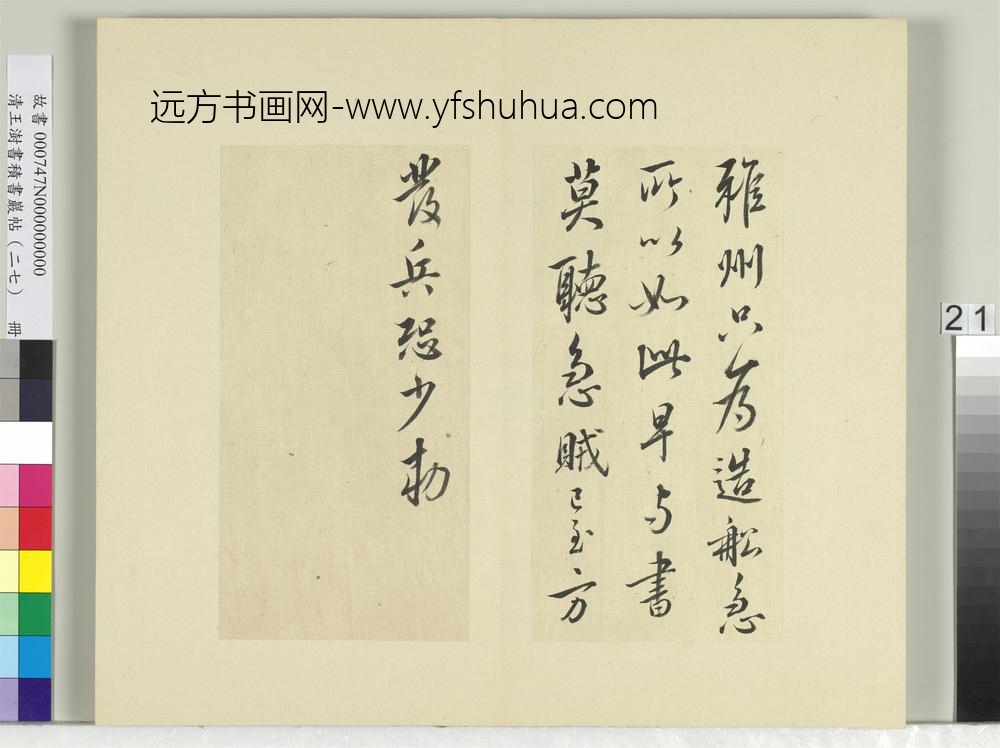 远方书画网-www.yfshuhua.com
雅州只为造船急
所以如此早与書
莫聽急賊已至方
發兵恐少勅
故書 000747N000000000
清王澍書積書巖帖（二七） 冊
21